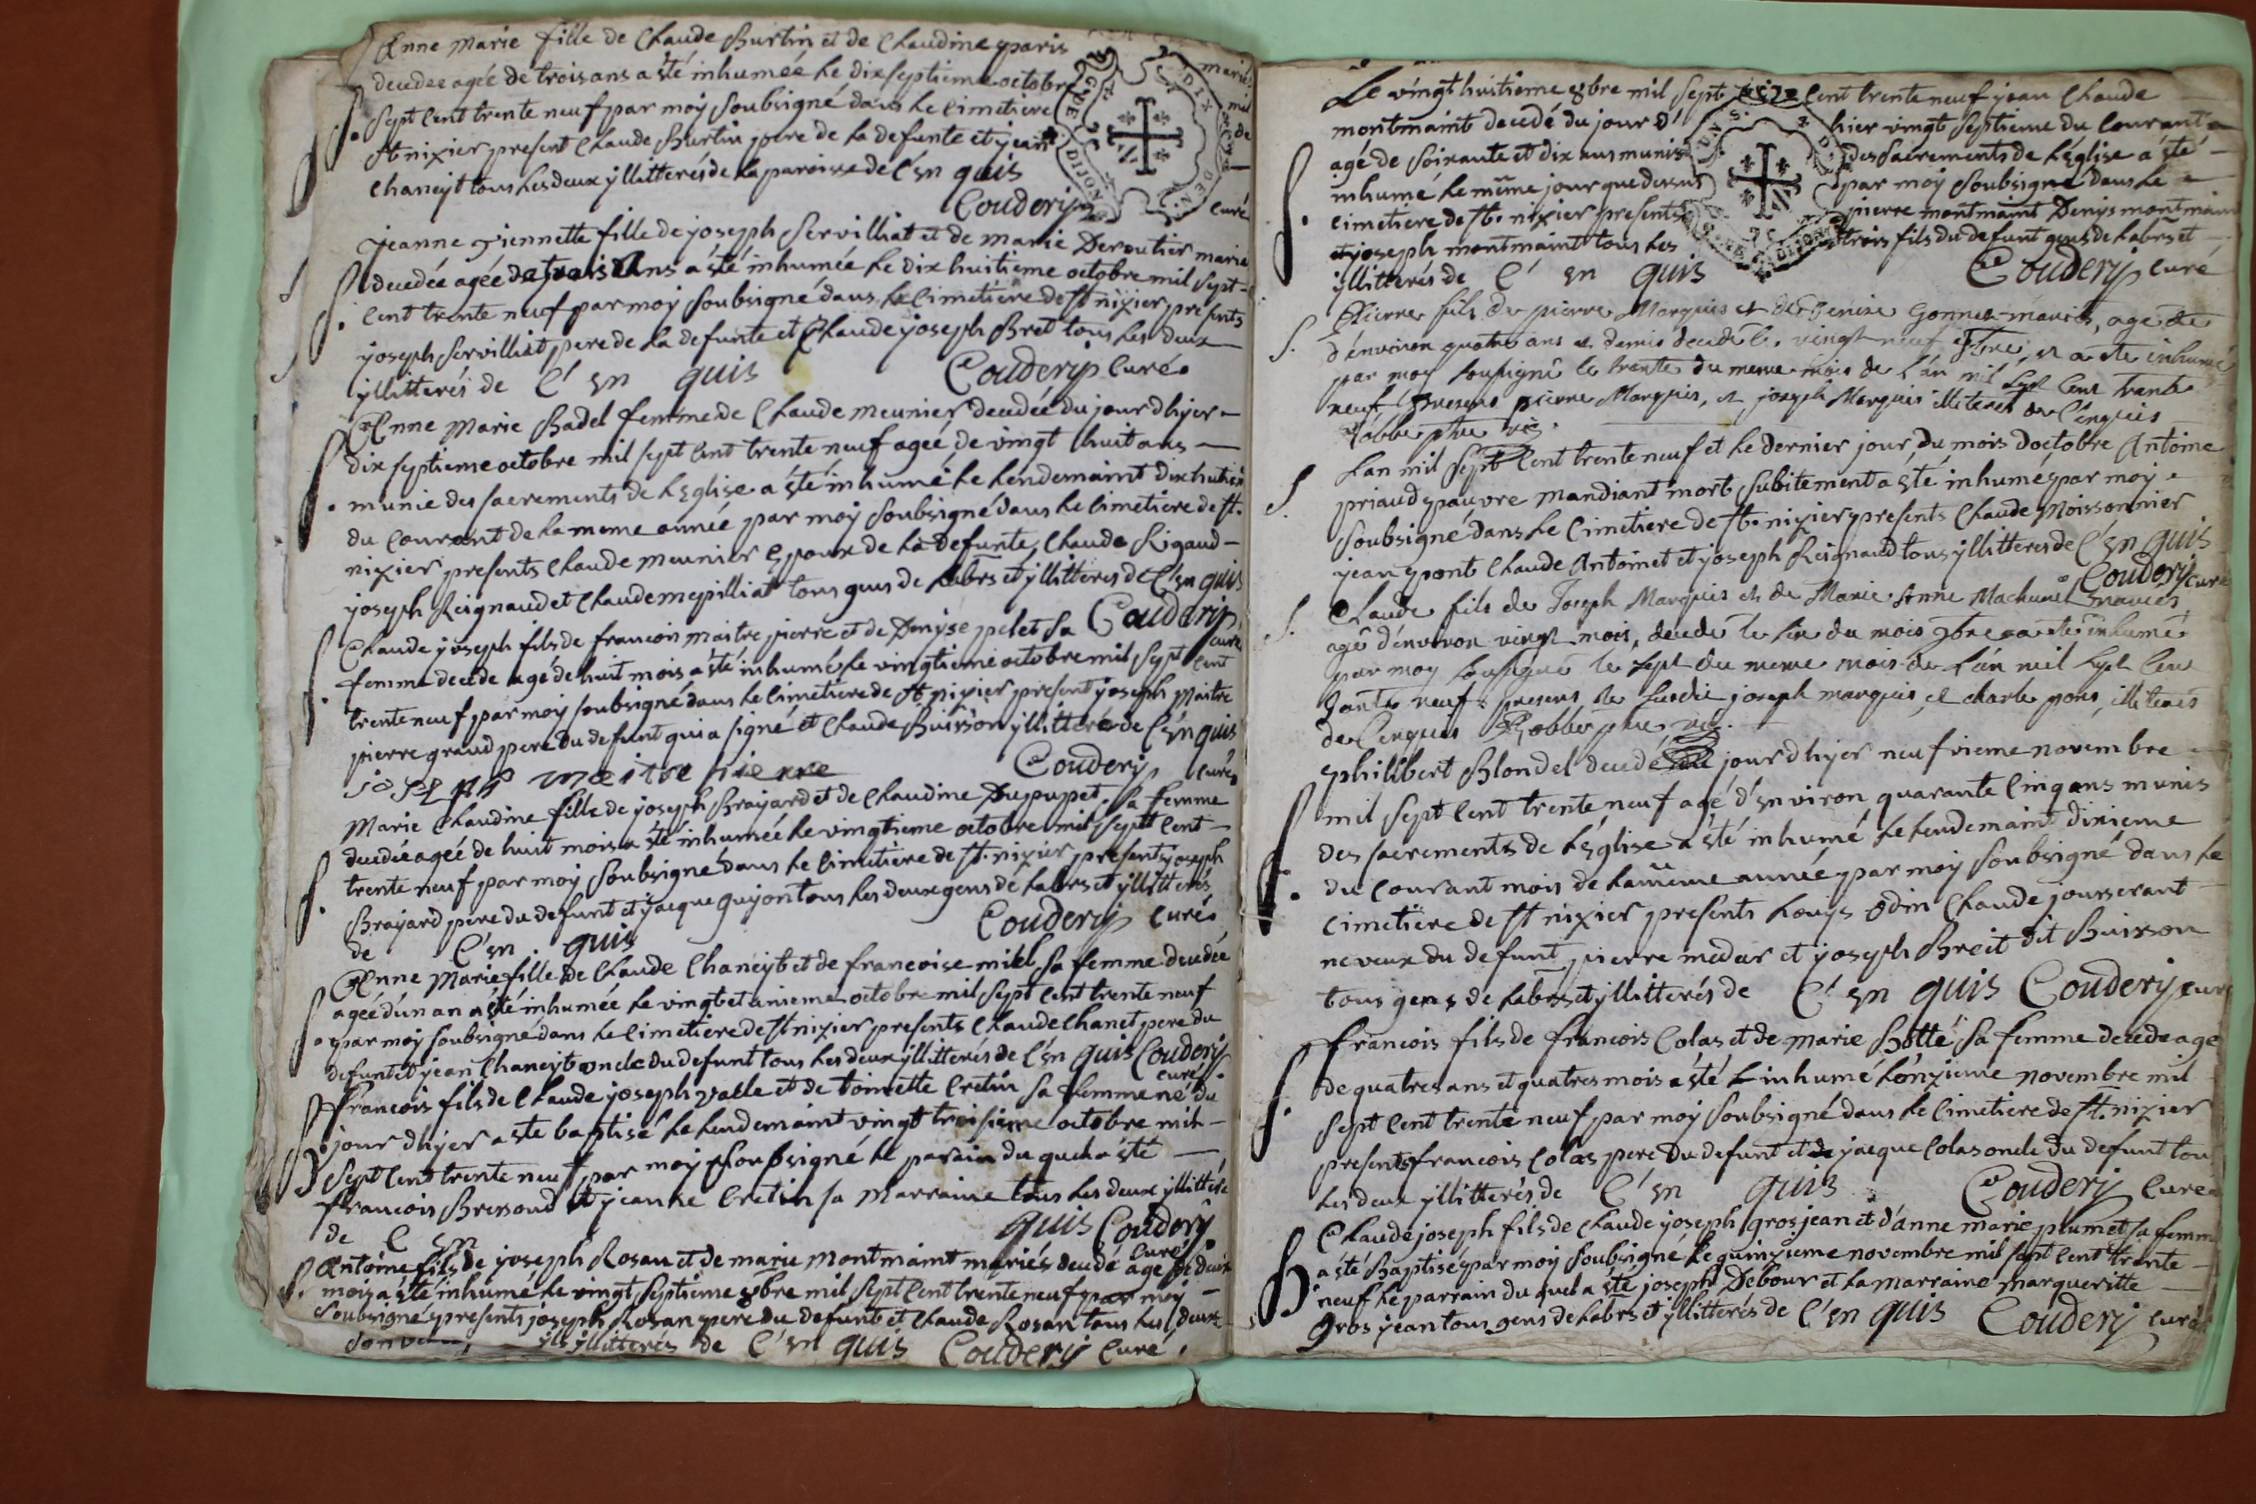 Anne Marie fille de Chaude Burtin et de Chaudine paris
decedeé ageé de trois ans a été inhumeé le dix septieme octobre
sept cent trente neuf par moÿ soubsigné dans le cimetiere
st nixier present Chaude Burtin pere de la defunte et jean
Chaneÿt tous les deux ÿllitterés de la paroisse de C'En quis
Couderÿ curé
jeanne Piennette fille de joseph Servilliat et de marie Deroutier marie
decedée ageé de trois Ans a été inhumeé le dix huitieme octobre mil sept
cent trente neuf par moÿ soubsigné dans le cimetiere de st nixier presents
joseph Servilliat pere de la defunte et Chaude joseph Bret tous les deux
ÿllitterés de C'En quis Couderÿ curé
Anne Marie Badel femme de Chaude meunier decedée du jour d'hÿer
dix septieme octobre mil sept cent trente neuf ageé de vingt huit ans
munie des sacrements de l'Eglise a été inhumé le lendemaint dix huitie
du courant de la meme anneé par moÿ soubsigné dans le cimetiere de st.
nixier presents Chaude meunier Epoux de la defunte, Chaude Rigaud
joseph Reignaud et Chaude mepilliat tous gens de labrs et ÿllitteres de C'En quis
Couderÿ curé
Chaude joseph fils de francois maitre pierre et de Denÿse pelet sa
femme decede agé de huit mois a été inhumé le vingtieme octobre mil sept cent
trente neuf par moÿ soubsigné dans le cimetiere de st nixier present joseph Maitre
pierre grand pere du defunt qui a signé et Chaude Buisson ÿllitteré de C'En quis
joseph maitre pierre Couderÿ curé
Marie Chaudine fille de joseph Braÿard et de Chaudine Dupupet sa femme
decedée ageé de huit mois a été inhumeé le vingtieme octobre mil sept cent
trente neuf par moÿ soubsigné dans le cimetiere de st. nixier presents joseph
Braÿard pere du defunt et jacque Guÿon tous les deux gens de labrs et ÿllitterés
de C'En quis Couderÿ curé
Anne Marie fille de Chaude Chaneÿt et de francoise miel sa femme decedée
ageé d'un an a été inhumée le vingt et unieme octobre mil sept cent trente neuf
par moÿ soubsigné dans le cimetiere de st nixier presents Chaude Chanet pere du
defunt et jean Chaneÿt oncle du defunt tous les deux ÿllitterés de C'En quis Couderÿ
curé
francois fils de Chaude joseph valle et de toinette Cretin sa femme né du
jour d'hÿer a ste baptisé le lendemaint vingt troisieme octobre mil
sept cent trente neuf par moÿ soubsigné le parain du quel a été
francois Bressoud et jeanne Cretin sa Marraine tous les deux ÿllitteré
de C En quis Couderÿ
curé
Antoine fils de joseph Rosan et de marie montmaint mariés decedé agé de deux
mois a été inhumé le vingt septieme 8bre mil sept cent trente neuf par moÿ
soubsigné presents joseph Rosan pere du defunt et Chaude Rosan tous les deux
ÿllitterés de C'En quis Couderÿ curé
Le vingt huitieme 8bre mil sept cent trente neuf jean Chaude
montmaint decedé du jour d'hier vingt septieme du courant
agé de soixante et dix ans munis des sacrements de l'église a été
inhumé le même jour que dessus par moÿ soubsigné dans le
cimetiere de st. nixier presents pierre montmaint Denis montmain
et joseph montmaint tous les trois fils du defunt gens de labrs et
ÿllitterés de C' En quis Couderÿ curé
Pierre fils de pierre Marquis et de Denise Gonnet mariés, agé de
d'environ quatre ans et demis decedé le vingt neuf 8bre, et a eté inhumé
par moy soussigné le trente du meme mois de l'an mil sept cent trente
neuf presens pierre Marquis, et joseph Marquis illiteres de C'enquis
Lan mil sept cent trente neuf et le dernier jour du mois d'octobre Antoine
priaud pauvre mandiant mort subitement a été inhumé par moÿ
soubsigné dans le cimetiere de st. nixier presents Chaude Moissonnier
jean pont Chaude Antoinet et joseph Reignaud tous ÿllitteres de C'En quis
Couderÿ curé
Claude fils de Joseph Marquis et de Marie Anne Machurel mariés
agé d'environ vingt mois, decedé le six du mois 9bre a eté inhumé
par moy soussigné le sept du meme mois de l'an mil sept cens
trante neuf presens le susdit joseph marquis, et charle pons, illiterés
de Cenquis
philibert Blondel decedé jour d'hÿer neufvieme novembre
mil sept cent trente neuf agé d'Environ quarante cinq ans munis
des sacrements de l'église a été inhumé le lendemaint dixieme
du courant mois de la meme année par moÿ soubsigné dans le
cimetiere de st nixier presents Louÿs odin Chaude jousserant
neveux du defunt pierre medar et joseph Breit dit Buisson
tous gens de labrs et ÿllitterés de C'En quis Couderÿ curé
francois fils de francois Colas et de marie Botté sa femme decede age
de quatres ans et quatres mois a été inhumé l'onzieme novembre mil
sept cent trente neuf par moÿ soubsigné dans le cimetiere de st. nixier
presents francois Colas pere du defunt et de jacque Colas oncle du defunt tous
les deux ÿllitterés de C'En quis Couderÿ curé
Chaude joseph fils de Chaude joseph gros jean et d'anne marie plumet sa femm
a été Baptisé par moÿ soubsigné le quinzieme novembre mil sept cent trente
neuf le parrain du quel a été joseph Debour et la marraine margueritte
gros jean tous gens de labrs et ÿllitterés de C'En quis Couderÿ curé